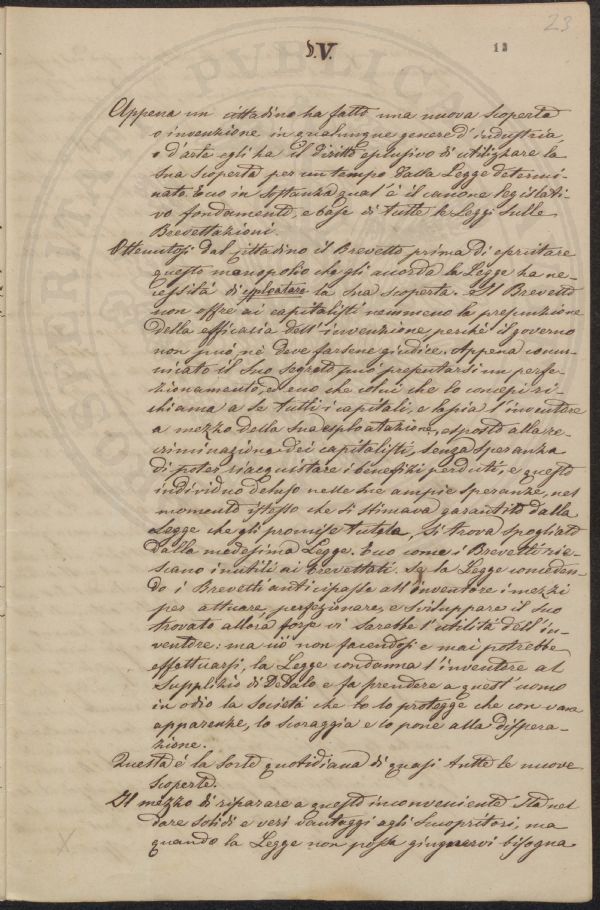 23
§.V. 12
Appena un cittadino ha fatto una nuova scoperta
o invenzione in qualunque genere d'industria,
o d'arte egli ha il diritto esclusivo di utilizzare la
sua scoperta per un tempo dalla Legge determi-
nato. Ecco in sostanza qual'è il canone legislati-
vo fondamento, e base di tutte le Leggi sulle
Brevettazioni.
Ottenutosi dal cittadino il Brevetto prima di esercitare
questo monopolio che gli accorda la Legge ha ne-
cessità di esploatare la sua scoperta. Il Brevetto
non offre ai capitalisti nemmeno la presunzione
della efficacia dell'invenzione perché il governo
non può nè deve farsene giudice. Appena comu-
nicato il suo segreto può presentarsi un perfe-
zionamento, ed ecco che colui che lo concepì ri-
chiama a se tutti i capitali, e lascia l'inventore
a mezzo della sua esploatazione, esposto alla re-
criminazione dei capitalisti, senza speranza
di poter riacquistare i benefizi perduti, e questo
individuo deluso nelle sue ampie speranze, nel
momento istesso che si stimava garantito dalla
Legge che gli promise tutela, si trova spogliato
dalla medesima Legge. Ecco come i Brevetti rie-
scano inutili ai brevettati. Se la Legge conceden-
do i Brevetti anticipasse all'inventore i mezzi
per attuare, perfezionare, e sviluppare il suo
trovato allora forse vi sarebbe l'utilità dell'in-
ventore: ma ciò non facendosi e mai potrebbe
effettuarsi, la Legge condanna l'inventore al
supplizio di Dedalo e fa prendere a quest'uomo
in odio la società che lo protegge che con vana
apparenze, lo scoraggia e lo pone alla dispera-
zione.
Questa é la sorte quotidiana di quasi tutte le nuove
scoperte.
Il mezzo di riparare a questo inconveniente sta nel
dare solidi e veri vantaggi agli Scopritori, ma
quando la Legge non possa giugnervi bisogna